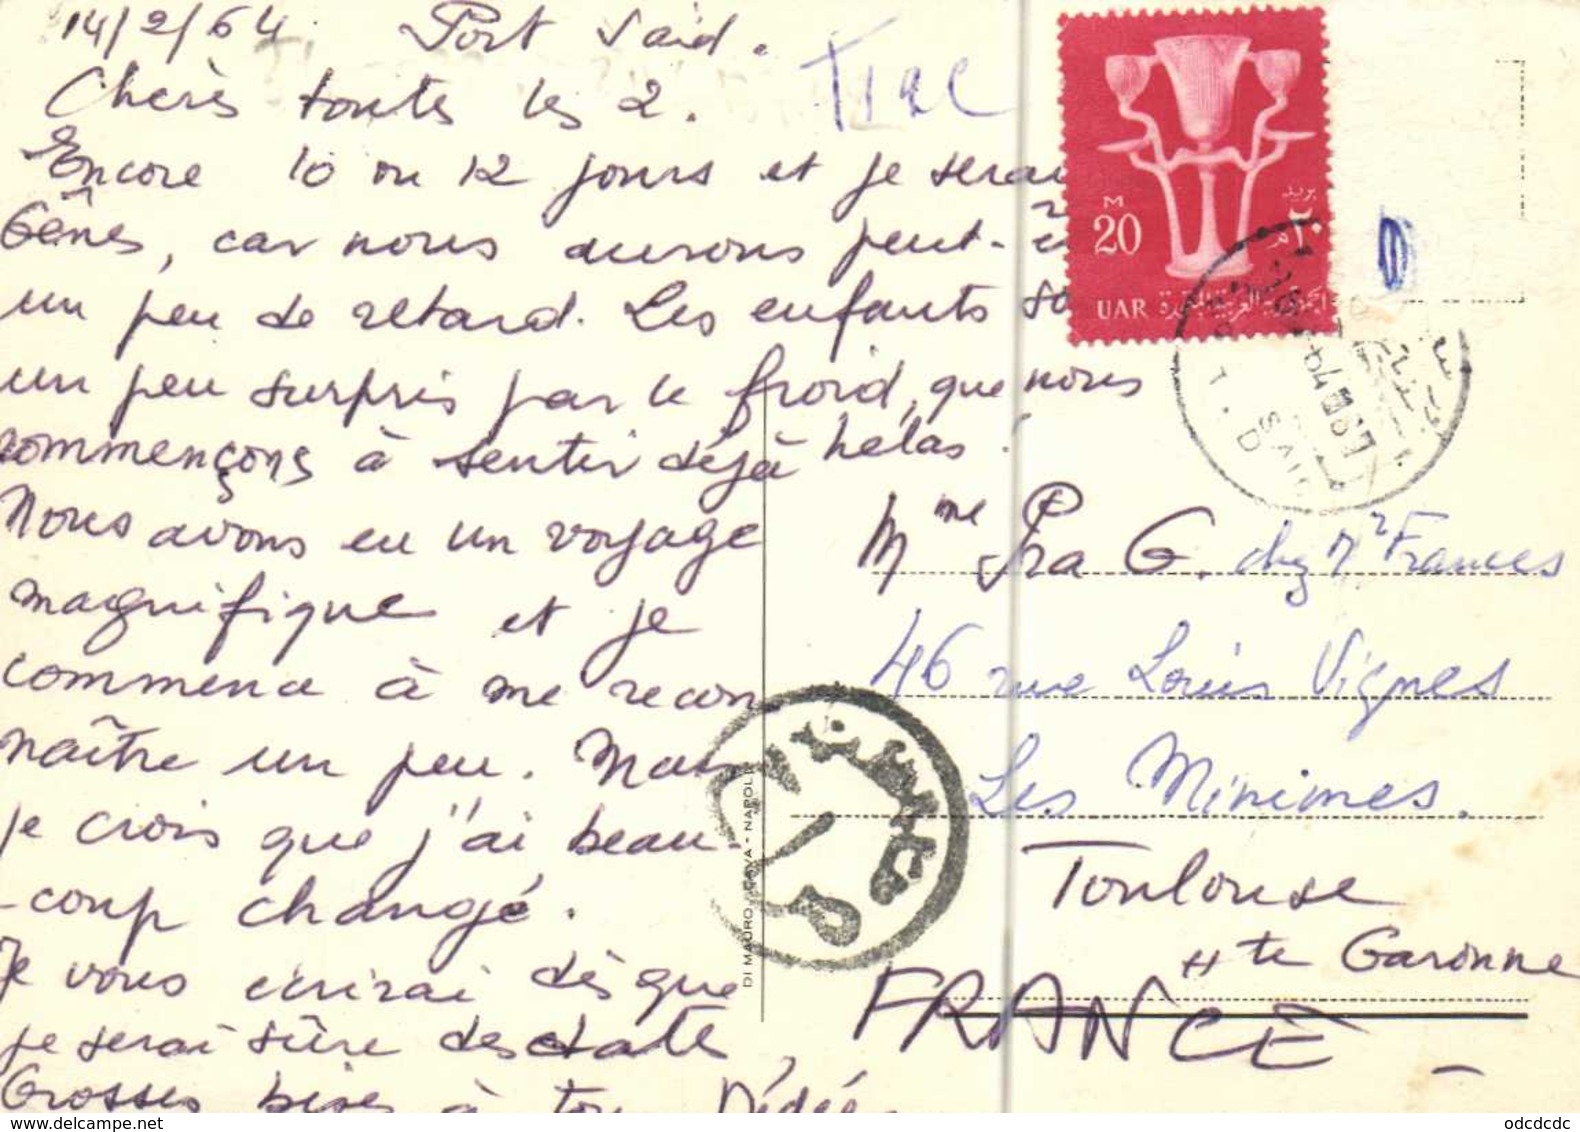 14/2/64. Port Saïd.
Chères toutes les 2.
Encore 10 ou 12 jours et je serai
Gênes, car nous aurons peut-ê
un peu de retard. Les enfants so
un peu surpris par le froid, que nous
commençons à sentir déjà hélas!
Nous avons eu un voyage
magnifique et je
commence à me recon
naître un peu. Mais
je crois que j'ai beau-
-coup changé.
Je vous écrirai dès que
je serai sûre des dates,
Grosses bises à tou Dédée
M 20
بريد
٢٠ م
UAR الجمهورية العربية المتحدة
SAID
Mme Pra G. chez Mr Frances
46 rue Louis Vignes
Les Minimes.
Toulouse
Hte Garonne
FRANCE
DI MAURO CAVA - NAPOLI
odcdcdc